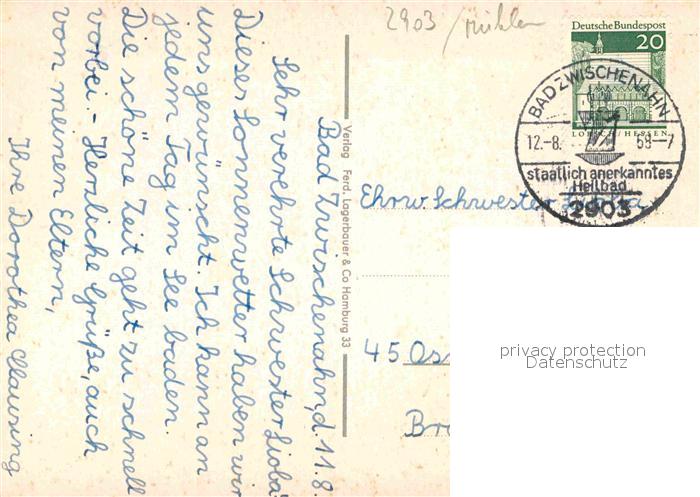 Bad Zwischenahn, d. 11.8.
Sehr verehrte Schwester Lioba!
Dieses Sonnenwetter haben wir
uns gewünscht. Ich kann an
jedem Tag im See baden.
Die schöne Zeit geht zu schnell
vorbei. - Herzliche Grüße, auch
von meinen Eltern,
Ihre Dorothea Clausing
Verlag Ferd. Lagerbauer & Co Hamburg 33
2903 / Mühlen
Deutsche Bundespost
20
LORSCH/HESSEN
BAD ZWISCHENAHN
12.-8. 68--7
staatlich anerkanntes
Heilbad
2903
Ehrw. Schwester Lioba
45 Os
Br
privacy protection
Datenschutz